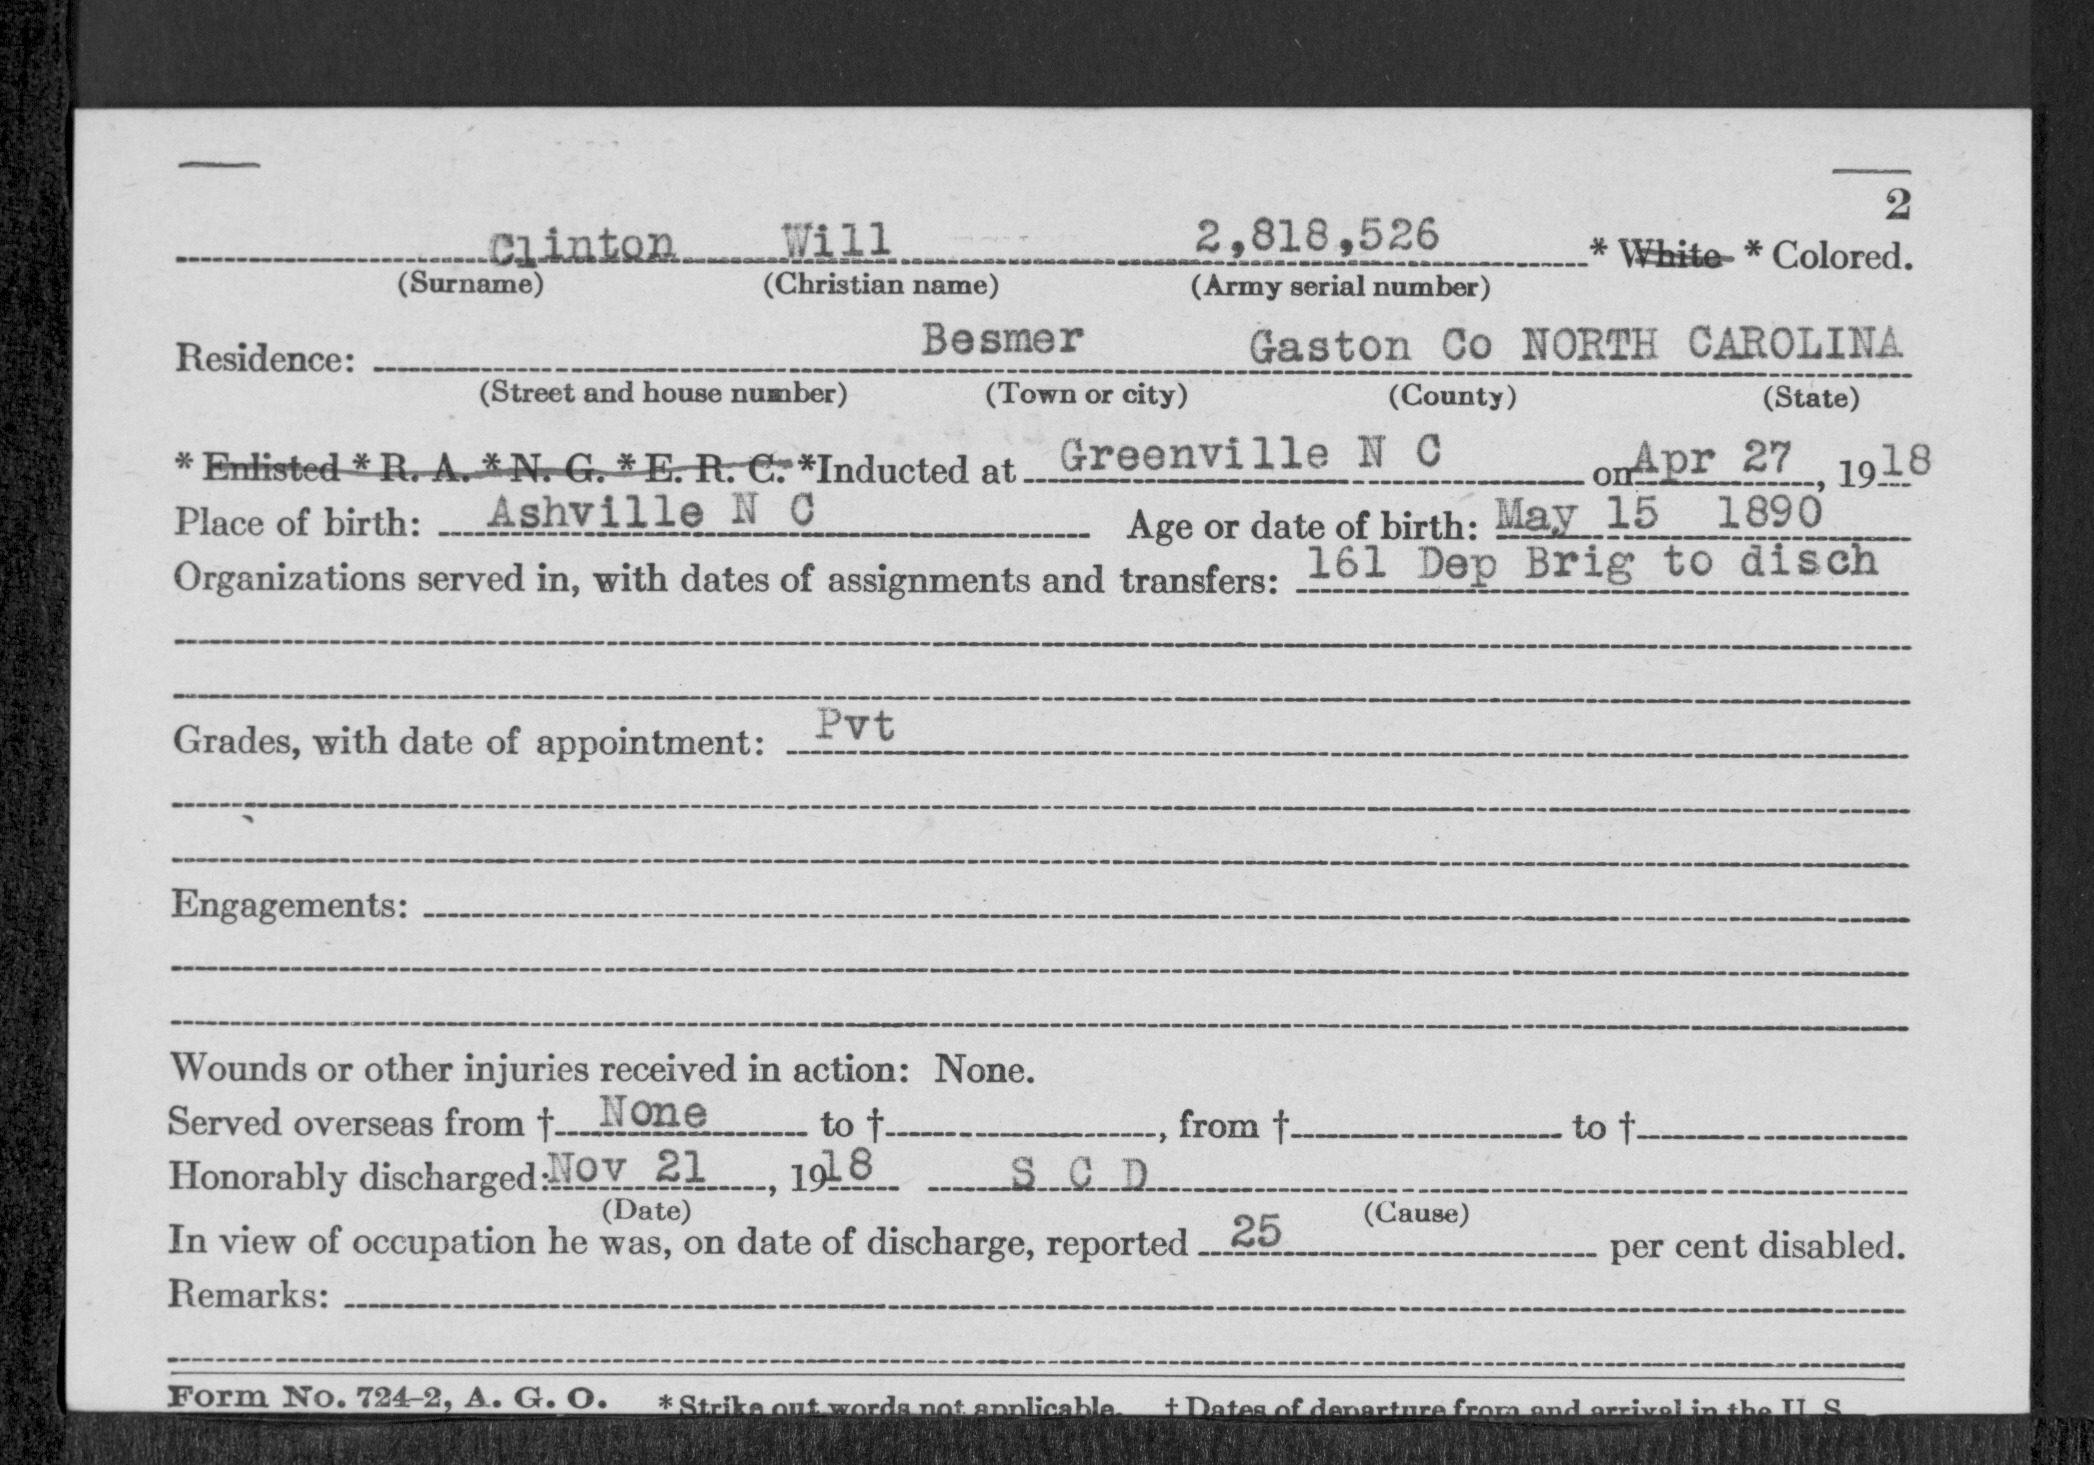 2
Clinton Will 2,818,526 * White * Colored.
(Surname) (Christian name) (Army serial number)
Residence: Besmer Gaston Co NORTH CAROLINA
(Street and house number) (Town or city) (County) (State)
* Enlisted * R. A. * N. G. * E. R. C. *Inducted at Greenville N C on Apr 27, 1918
Place of birth: Ashville N C Age or date of birth: May 15 1890
Organizations served in, with dates of assignments and transfers: 161 Dep Brig to disch
Grades, with date of appointment: Pvt
Engagements:
Wounds or other injuries received in action: None.
Served overseas from † None to †, from † to †
Honorably discharged: Nov 21, 1918 S C D
(Date) (Cause)
In view of occupation he was, on date of discharge, reported 25 per cent disabled.
Remarks:
Form No. 724-2, A. G. O. *Strike out words not applicable. † Dates of departure from and arrival in the U. S.